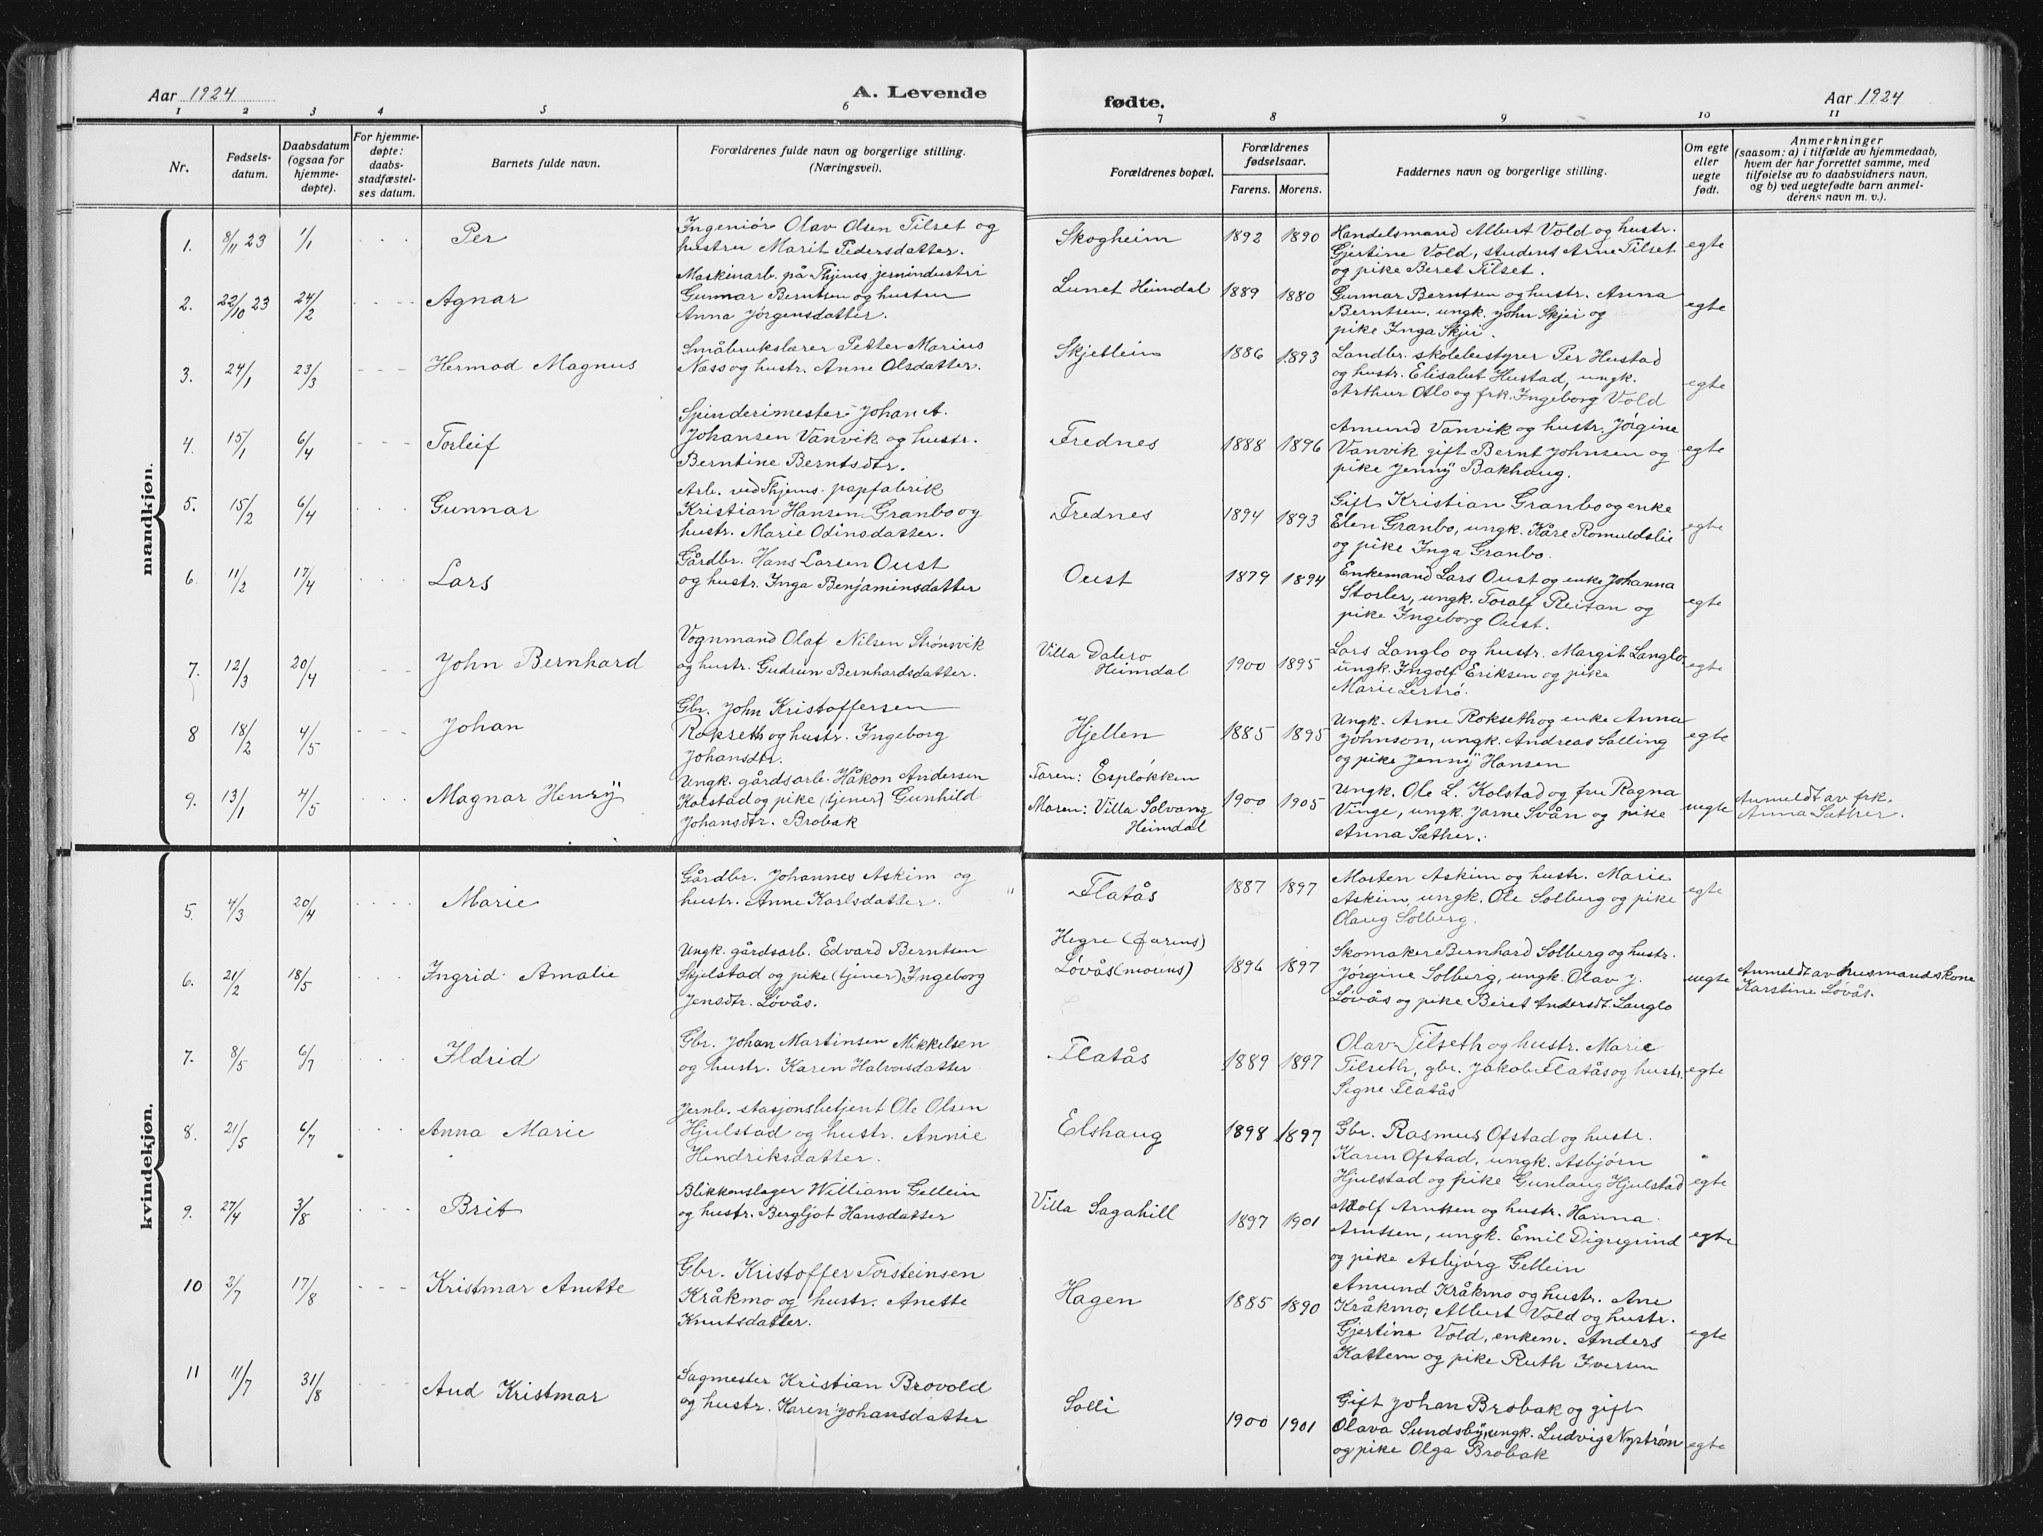 Aar 1924
A. Levende
fødte.
Aar 1924
1 2 3 4 5 6 7 8 9 10 11
Nr.
Fødsels-
datum.
Daabsdatum
(ogsaa for
hjemme-
døpte).
For hjemme-
døpte:
daabs-
stadfæstel-
ses datum.
Barnets fulde navn.
Forældrenes fulde navn og borgerlige stilling.
(Næringsvei).
Forældrenes bopæl.
Forældrenes
fødselsaar.
Farens. Morens.
Faddernes navn og borgerlige stilling.
Om egte
eller
uegte
født.
Anmerkninger
(saasom: a) i tilfælde av hjemmedaab,
hvem der har forrettet samme, med
tilføielse av to daabsvidners navn,
og b) ved uegtefødte barn anmel-
derens navn m. v.).
mandkjøn.
1. 8/11 23 1/1 Per
Ingeniør Olav Olsen Tilset og
hustru Marit Pedersdatter.
Skogheim 1892 1890
Handelsmand Albert Vold og hustr.
Gjertine Vold, student Arne Tilset
og pike Beret Tilset.
egte
2. 22/10 23 24/2 Agnar
Maskinarb. på Thjems jernindustri
Gunnar Berntsen og hustru
Anna Jørgensdatter.
Lunet Heimdal 1889 1880
Gunnar Berntsen og hustr. Anna
Berntsen, ungk. John Skjei og
pike Inga Skjei.
egte
3. 24/1 23/3 Hermod Magnus
Småbrukslærer Petter Marius
Næss og hustr. Anne Olsdatter.
Skjetlein 1886 1893
Landbr. skolebestyrer Per Hustad
og hustr. Elisabet Hustad, ungk.
Arthur Oto og frk. Ingeborg Vold
egte
4. 15/1 6/4 Torleif
Spinderimester Johan A.
Johansen Vanvik og hustr.
Berntine Berntsdtr.
Frednes 1888 1896
Amund Vanvik og hustr. Jørgine
Vanvik gift Bernt Johnsen og
pike Jenny Bakhaug.
egte
5. 15/2 6/4 Gunnar
Arb. ved Thjems papfabrik
Kristian Hansen Granbo og
hustr. Marie Odinsdatter.
Frednes 1894 1893
Gift Kristian Granbo og enke
Elen Granbo, ungk. Kåre Romuldslie
og pike Inga Granbo.
egte
6. 11/2 17/4 Lars
Gårdbr. Hans Larsen Oust
og hustr. Inga Benjaminsdatter
Oust 1879 1894
Enkemand Lars Oust og enke Johanna
Storler, ungk. Toralf Reitan og
pike Ingeborg Oust.
egte
7. 12/3 20/4 John Bernhard
Vognmand Olaf Nilsen Strømsvik
og hustr. Gudrun Bernhardsdatter.
Villa Dalero
Heimdal
1900 1895
Lars Langlo og hustr. Margit Langlo,
ungk. Ingolf Eriksen og pike
Marie Lestrø.
egte
8 18/2 4/5 Johan
Gbr. John Kristoffersen
Rokseth og hustr. Ingeborg
Johansdtr.
Hjellen 1885 1895
Ungk. Arne Rokseth og enke Anna
Johnson, ungk. Andreas Salling
og pike Jenny Hansen
egte
9. 13/1 4/5 Magnar Henry
Ungk. gårdsarb. Håkon Andersen
Kolstad og pike (tjener) Gunhild
Johansdtr. Brobak
Faren: Espløkken
Moren: Villa Solvang
Heimdal
1900 1905
Ungk. Ole L. Kolstad og fru Ragna
Vinge, ungk. Jarne Svån og pike
Anna Sæther.
uegte
Anmeldt av frk.
Anna Sæther.
kvindekjøn.
5. 4/3 20/4 Marie
Gårdbr. Johannes Askim og
hustr. Anne Karlsdatter.
Flatås 1887 1897
Morten Askim og hustr. Marie
Askim, ungk. Ole Solberg og pike
Olaug Solberg.
egte
6. 21/2 18/5 Ingrid Amalie
Ungk. gårdsarb. Edvard Berntsen
Skjelstad og pike (tjener) Ingeborg
Jensdtr. Løvås.
Hegre (farens)
Løvås (morens)
1896 1897
Skomaker Bernhard Solberg og hustr.
Jørgine Solberg, ungk. Olav J.
Løvås og pike Beret Andersdt. Langlo
uegte
Anmeldt av husmandskone
Karstine Løvås.
7. 8/5 6/7 Ildrid
Gbr. Johan Martinsen Mikkelsen
og hustr. Karen Halvorsdatter
Flatås 1889 1897
Olav Tilseth og hustr. Marie
Tilseth, gbr. Jakob Flatås og hustr.
Signe Flatås
egte
8. 21/5 6/7 Anna Marie
Jernb. stasjonsbetjent Ole Olsen
Hjulstad og hustr. Annie
Hendriksdatter.
Elshaug 1898 1897
Gbr. Rasmus Ofstad og hustr.
Karen Ofstad, ungk. Asbjørn
Hjulstad og pike Gunlaug Hjulstad
egte
9. 27/4 3/8 Brit
Blikkenslager William Gellein
og hustr. Bergljot Hansdatter
Villa Sagahill 1897 1901
Adolf Arntsen og hustr. Hanna
Arntsen, ungk. Emil Digregrind
og pike Asbjørg Gellein
egte
10 2/7 17/8 Kristmar Anette
Gbr. Kristoffer Torsteinsen
Kråkmo og hustr. Anette
Knutsdatter.
Hagen 1885 1890
Amund Kråkmo og hustr. Ane
Kråkmo, Albert Vold og hustr.
Gjertine Vold, enkem. Anders
Kattem og pike Ruth Iversen
egte
11 11/7 31/8 Aud Kristmar
Sagmester Kristian Brovold
og hustr. Karen Johansdatter
Solli 1900 1901
Gift Johan Brobak og gift
Olava Sundsby, ungk. Ludvig Nystrøm
og pike Olga Brobak
egte